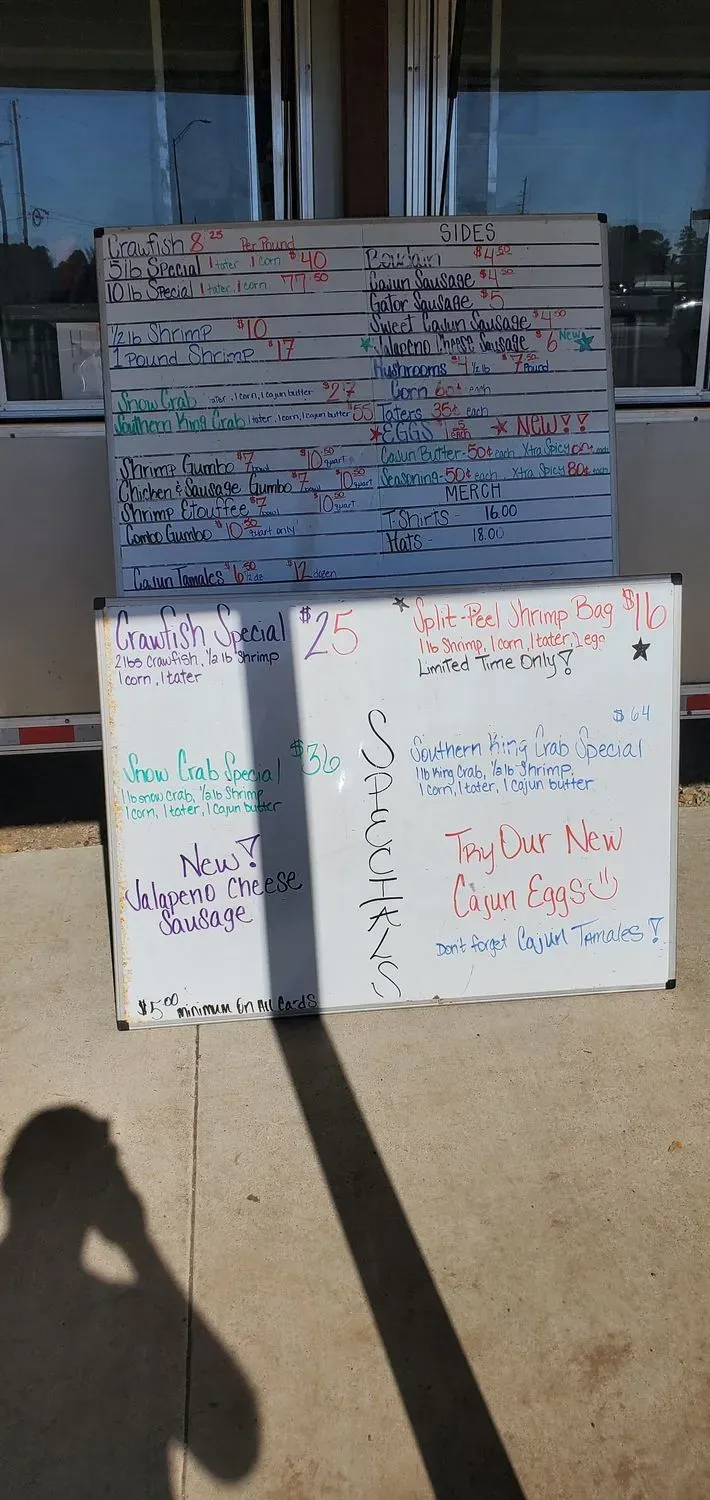 Crawfish 8 25 Per Pound
5lb Special 1 tater, 1 corn $40
10 lb Special 1 tater, 1 corn 77 50
1/2 lb Shrimp $10
1 Pound Shrimp $17
Snow Crab 1 corn, 1 cajun butter $27
Southern King Crab 1 tater, 1 corn, 1 cajun butter $55
Shrimp Gumbo $7 bowl $10 50 quart
Chicken & Sausage Gumbo $7 bowl $10 50 quart
Shrimp Etouffee $7 bowl $10 50 quart
Combo Gumbo $10 50 quart only
Cajun Tamales $6 50 1/2 dz $12 dozen
SIDES
Boudain $4 50
Cajun Sausage $4 50
Gator Sausage $5
Sweet Cajun Sausage $4 50
Jalapeno Cheese Sausage $6 New
Mushrooms $4 1/2 lb $7 50 Pound
Corn 60¢ each
Taters 35¢ each
EGGS each NEW!!
Cajun Butter - 50¢ each Xtra Spicy
Seasoning - 50¢ each Xtra Spicy 80¢ each
MERCH
T-Shirts - 16.00
Hats - 18.00
Crawfish Special $25
2 lbs crawfish, 1/2 lb Shrimp
1 corn, 1 tater
Snow Crab Special $36
1 lb snow crab, 1/2 lb Shrimp
1 corn, 1 tater, 1 cajun butter
New!
Jalapeno Cheese
Sausage
$5 00 minimum On All Cards
SPECIALS
Split-Peel Shrimp Bag $16
1 lb Shrimp, 1 corn, 1 tater, 1 egg
Limited Time Only!
$64
Southern King Crab Special
1 lb King Crab, 1/2 lb Shrimp,
1 corn, 1 tater, 1 cajun butter
Try Our New
Cajun Eggs
Don't forget Cajun Tamales!